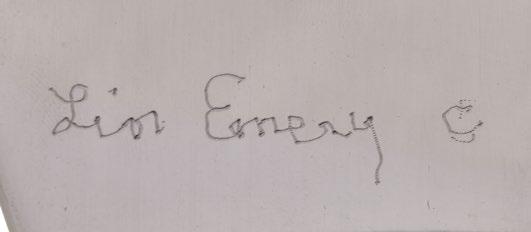 Lin Emery ©